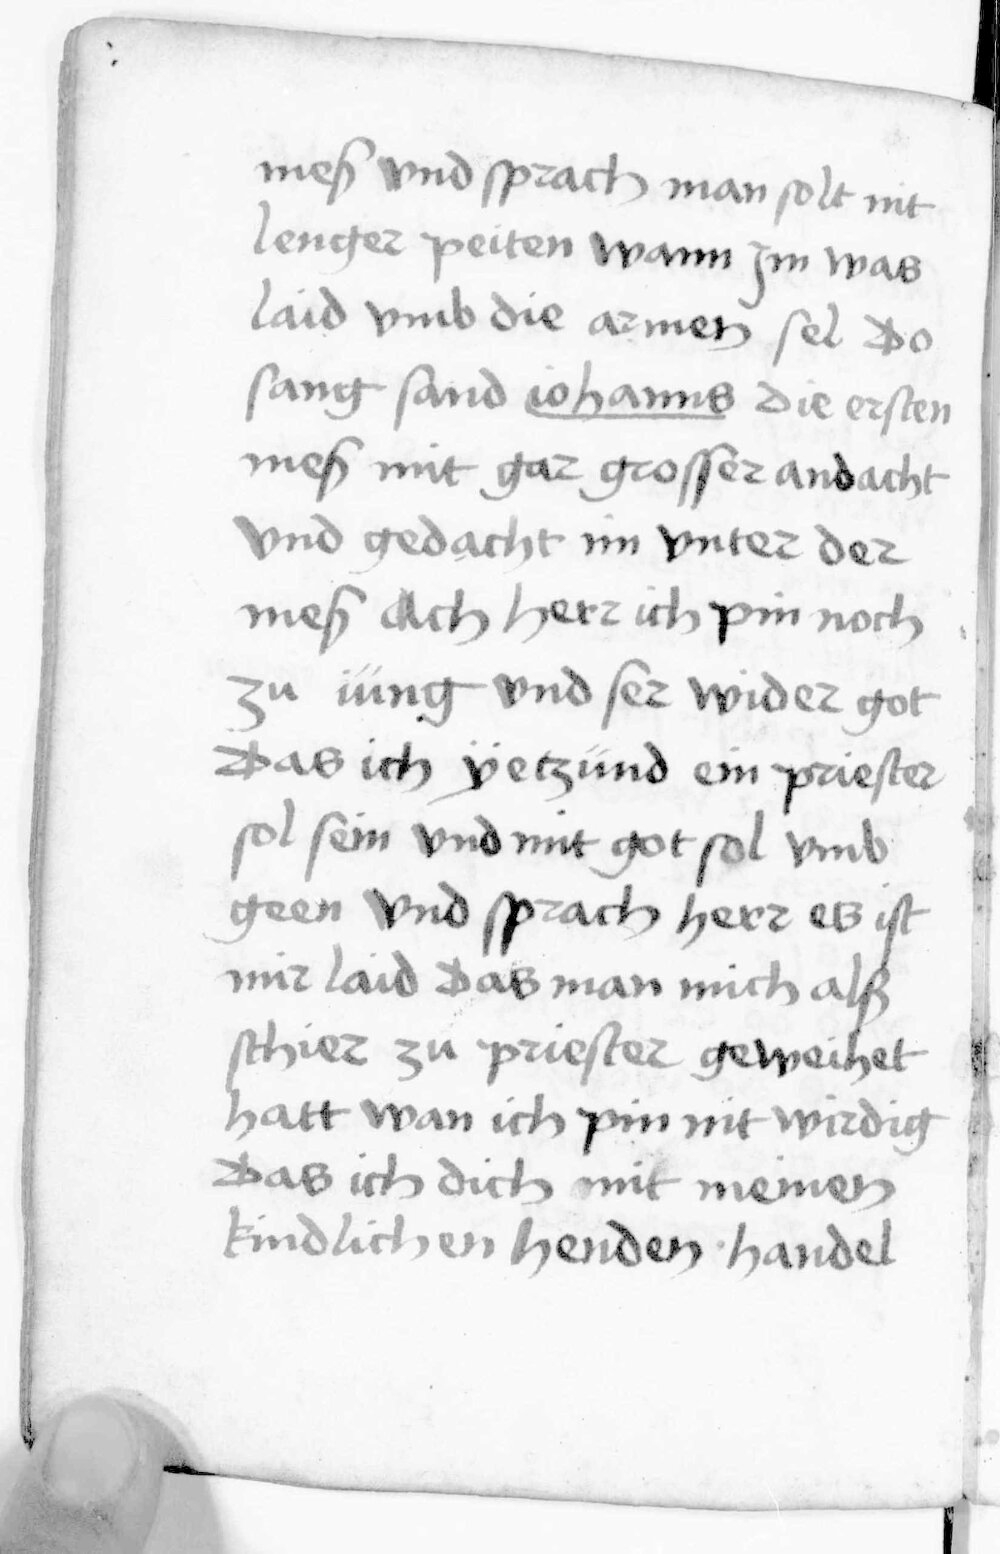 meß vnd sprach man solt nit
lenger peiten wann Jm was
laid vmb die armen sel Do
sang sand iohanns die ersten
meß mit gar grosser andacht
vnd gedacht im vnter der
meß Ach herr ich pin noch
zu iüng vnd ser wider got
Das ich ÿetzünd ein priester
sol sein vnd mit got sol vmb
geen vnd sprach herr es ist
mir laid Das man mich alß
schier zu priester geweihet
hatt wan ich pin nit wirdig
Das ich dich mit meinen
kindlichen henden handel